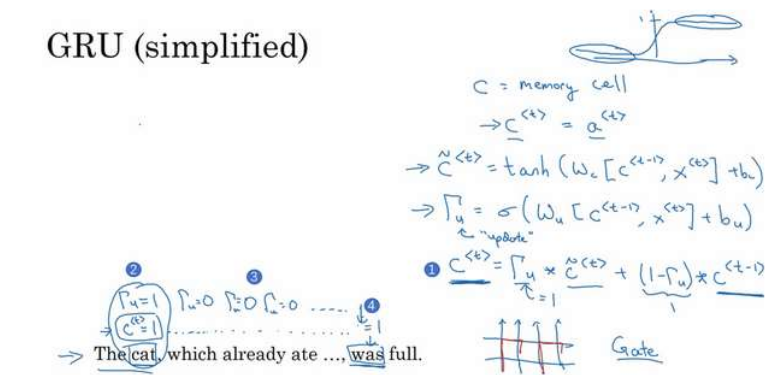 GRU (simplified)
1
c = memory cell
→ c^{<t>} = a^{<t>}
→ c̃^{<t>} = tanh(W_c[c^{<t-1>}, x^{<t>}] + b_c)
→ Γ_u = σ(W_u[c^{<t-1>}, x^{<t>}] + b_u)
"update"
1 c^{<t>} = Γ_u * c̃^{<t>} + (1-Γ_u) * c^{<t-1>}
=1
1
2 3 4
Γ_u=1 Γ_u=0 Γ_u=0 Γ_u=0 .....
→ c^{<t>}=1 ............ =1
→ The cat, which already ate ..., was full.
Gate